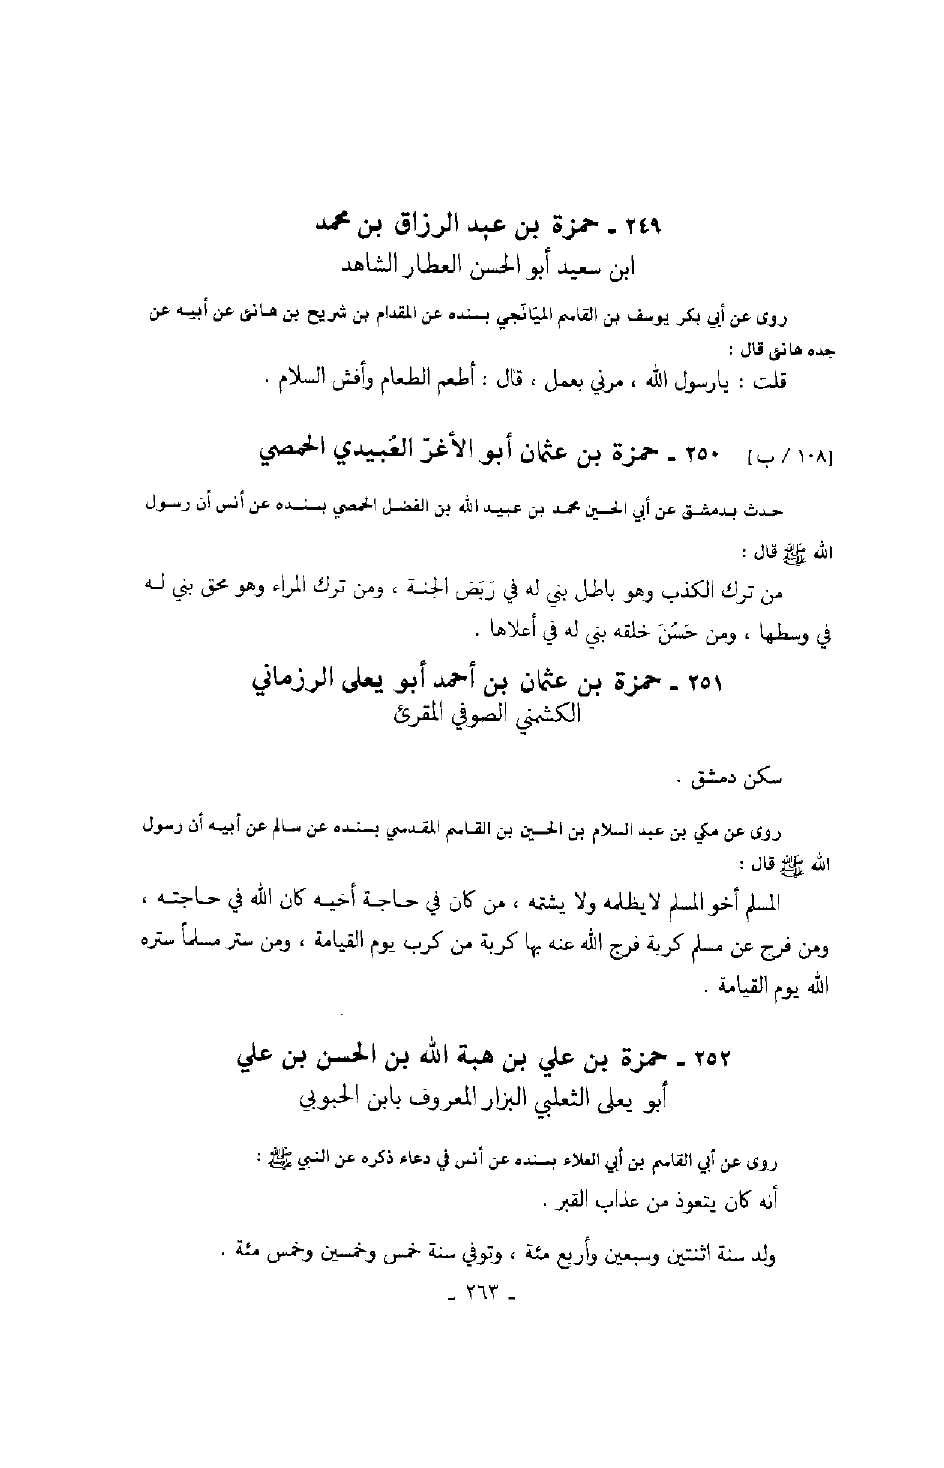 ٢٤٩ ـ حمزة بن عبد الرزاق بن محمد
ابن سعيد أبو الحسن العطار الشاهد
روى عن أبي بكر يوسف بن القاسم الميَانَجي بسنده عن المقدام بن شريح بن هانئ عن أبيه عن
جده هانئ قال :
قلت : يارسول الله ، مرني بعمل ، قال : أطعم الطعام وأفش السلام .
[١٠٨/ ب] ٢٥٠ ـ حمزة بن عثمان أبو الأغرّ العُبيدي الحمصي
حدث بدمشق عن أبي الحسين محمد بن عبيد الله بن الفضل الحمصي بسنده عن أنس أن رسول
الله ﷺ قال :
من ترك الكذب وهو باطل بني له في رَبَض الجنة ، ومن ترك المراء وهو محق بني له
في وسطها ، ومن حَسُنَ خلقه بني له في أعلاها .
٢٥١ ـ حمزة بن عثمان بن أحمد أبو يعلى الرزماني
الكشمني الصوفي المقرئ
سكن دمشق .
روى عن مكي بن عبد السلام بن الحسين بن القاسم المقدسي بسنده عن سالم عن أبيه أن رسول
الله ﷺ قال :
المسلم أخو المسلم لايظلمه ولا يشتمه ، من كان في حاجة أخيه كان الله في حاجته ،
ومن فرج عن مسلم كربة فرج الله عنه بها كربة من كرب يوم القيامة ، ومن ستر مسلماً ستره
الله يوم القيامة .
٢٥٢ ـ حمزة بن علي بن هبة الله بن الحسن بن علي
أبو يعلى الثعلبي البزار المعروف بابن الحبوبي
روى عن أبي القاسم بن أبي العلاء بسنده عن أنس في دعاء ذكره عن النبي ﷺ :
أنه كان يتعوذ من عذاب القبر .
ولد سنة اثنتين وسبعين وأربع مئة ، وتوفي سنة خمس وخمسين وخمس مئة .
ـ ٢٦٣ ـ